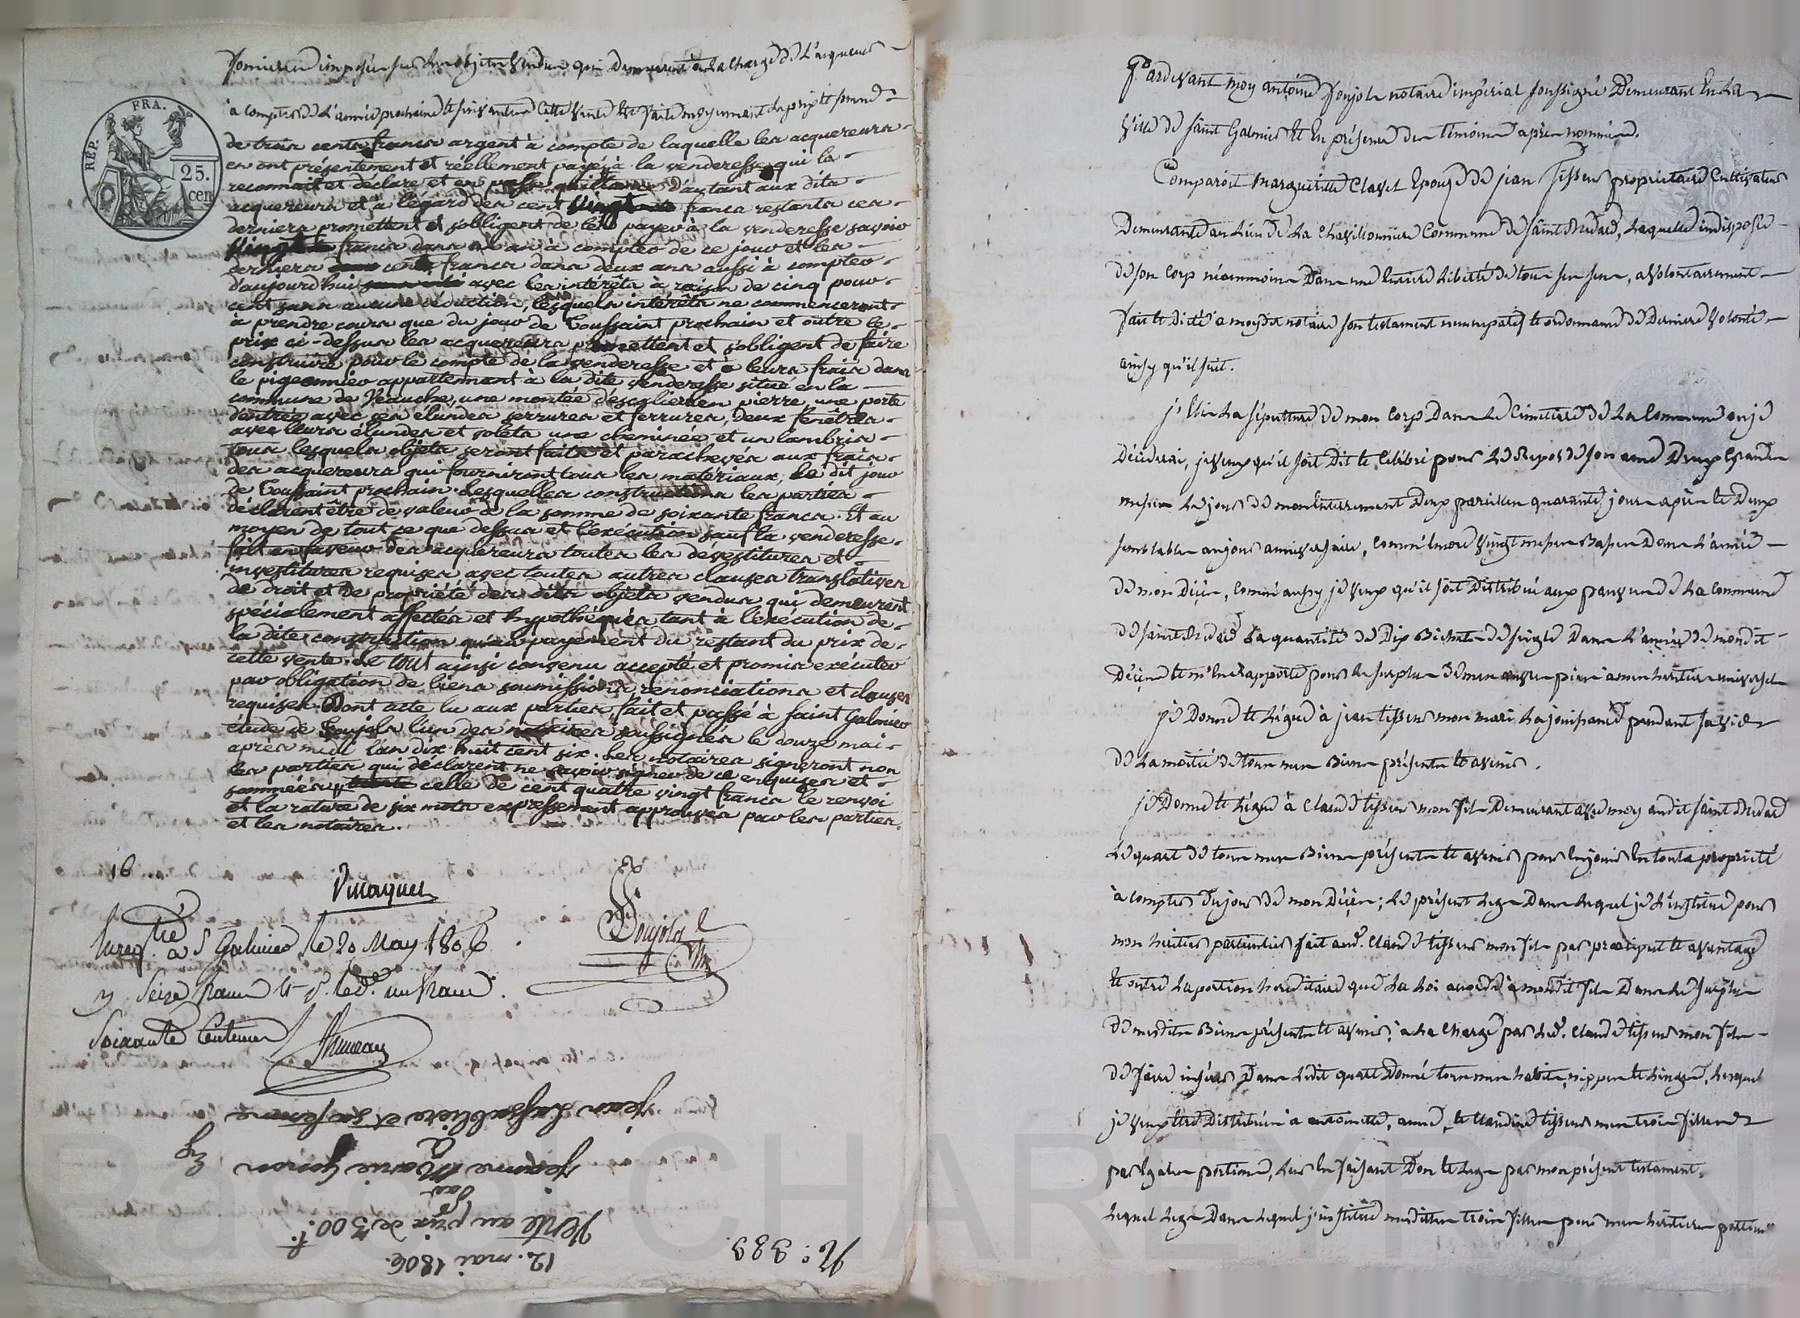 foncieres imposées sur les objets vendus qui demeurent à la charge de l'acquereur
à compter de l'année prochaine et suivantes Cette vente est faite moyennant le prix et somme
de trois cents francs argent à compte de laquelle les acquereurs
en ont présentement et réellement payés à la venderesse qui le
reconnait et declare et en passe quittance d'autant aux dits
acquereurs et à légard des cent francs restants ces
derniers promettent et sobligent de les payer à la venderesse savoir
francs dans un an à compter de ce jour et les
derniers cents francs dans deux ans aussi à compter
daujourdhui avec les intérêts à raison de cinq pour
cent sans aucune déduction, lesquels intérêts ne commenceront
à prendre cours que du jour de Toussaint prochain et outre le
prix ci-dessus les acquereurs promettent et sobligent de faire
construire pour le compte de la venderesse et à leurs frais dans
le pigeonnier appartenant à la dite venderesse situé en la
commune de Veauche, une montée descalier en pierre, une porte
dentrée avec ses élundes serrures et ferrures, deux fenêtres
avec leurs élundes et volets une cheminée et un lambris
tous lesquels objets seront faits et parachevés aux frais
des acquereurs qui fourniront tous les matériaux, le dit jour
de Toussaint prochain. Lesquelles constructions les parties
déclarent être de valeur de la somme de soixante francs. Et au
moyen de tout ce que dessus et l'exécution sauf la venderesse
fait en faveur des acquereurs toutes les dévestitures et
investitures requises avec toutes autres clauses translatives
de droit et de propriété des dits objets vendus qui demeurent
spécialement affectés et hypothéqués tant à l'exécution de
la dite construction qu'au payement du restant du prix de
cette vente. Le tout ainsi convenu accepté et promis exécuter
par obligation de biens soumissions, renonciations et clauses
requises. Dont acte lu aux parties, fait et passé à saint Galmier
étude de Tonjola l'un des notaires soussignés le douze mai
après midi l'an dix huit cent six. Les notaires signeront non
les parties qui déclarent ne savoir signer de ce enquises et
sommées, celle de cent quatre vingt francs le renvoi
et la rature de six mots expressement approuvés par les parties
et les notaires.
REP. FRA.
25.
cen
16
Tonjola
Enregtré à St Galmier le 20 May 1806.
Seize francs
Soixante Centimes
Jean et sa femme
Jeanne Marie
par
Vente au prix de 300 f.
12. mai 1806.
No. 389
Pardevant moy antoine Tonjola notaire impérial soussigné Demeurant En la
Ville de saint Galmier Et En présence des témoins après nommés.
Comparoit marguerite Clavel Epouse de jean Tisseur propriétaire Cultivateur
Demeurante au Lieu de La Commune de saint Médard, Laquelle indisposée
de son Corp néanmoins Dans une Entiere Liberté de tous ses sens, a volontairement
fait et Dicté a moy dit notaire son testament nuncupatif et ordonnance de Derniere volonté
ainsy qu'il suit.
j'Elis La sépulture de mon Corp Dans Le Cimetiere de La Commune ou je
Décéderai, je veux qu'il soit Dit et Célébré pour Le Repos de son ame Deux Grandes
messes Le jour de mon Enterrement Deux pareilles quarante jours après et Deux
semblables au jour anniversaire, Comm'encore vingt messes Basses Dans L'année
de mon Décès, Comm'aussy je veux qu'il soit Distribué aux pauvres de La Commune
de saint Médard La quantité de Dix Bichets de seigle Dans L'année de mondit
Décès et m'En Rapporte pour Le surplus de mes œuvres pies a mon héritier universel
je Donne et Légue à jean tisseur mon mari La jouissance pendant sa vie
de La moitié de tous mes Biens présents et avenir.
je Donne et Légue à Claude tisseur mon fils Demeurant avec moy audit saint Médard
Le quart de tous mes Biens présents et avenir pour En jouir En toute propriété
à compter du jour de mon Décès; Le présent Legs Dans Lequel je L'institue pour
mon héritier particulier fait aud. Claude tisseur mon fils par préciput et avantage
et outre La portion héréditaire que La Loi accorde à mondit fils Dans Le surplus
de mesdits Biens présents et avenir; a La Charge par Led. Claude tisseur mon fils
de faire insérer Dans Ledit quart Donné tous mes habits, nippes et Linges, Lesquels
je veux être Distribués à antoinette, anne, et Claudine tisseur mes trois filles
par Egales portions, Leur En faisant Don et Legs par mon présent testament,
Lequel Legs Dans Lequel j'institue mesdites trois filles pour mes héritieres
CHAREYRON